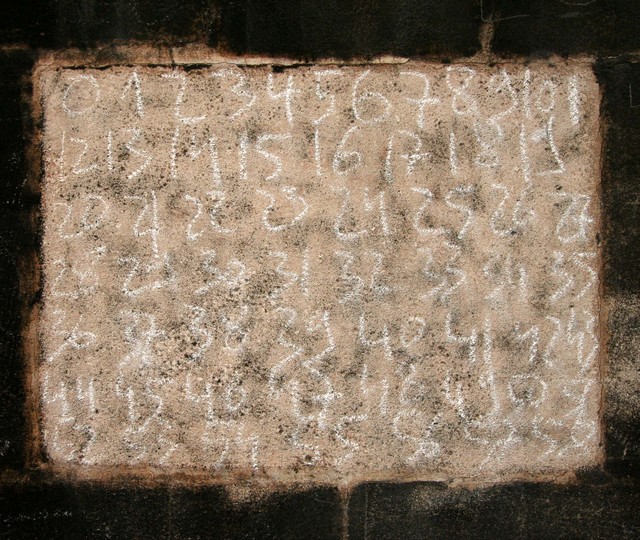 0 1 2 3 4 5 6 7 8 9 10 11
12 13 14 15 16 17 18 19
20 21 22 23 24 25 26 27
28 29 30 31 32 33 34 35
36 37 38 39 40 41 42 43
44 45 46 47 48 49 50 51
52 53 54 55 56 57 58